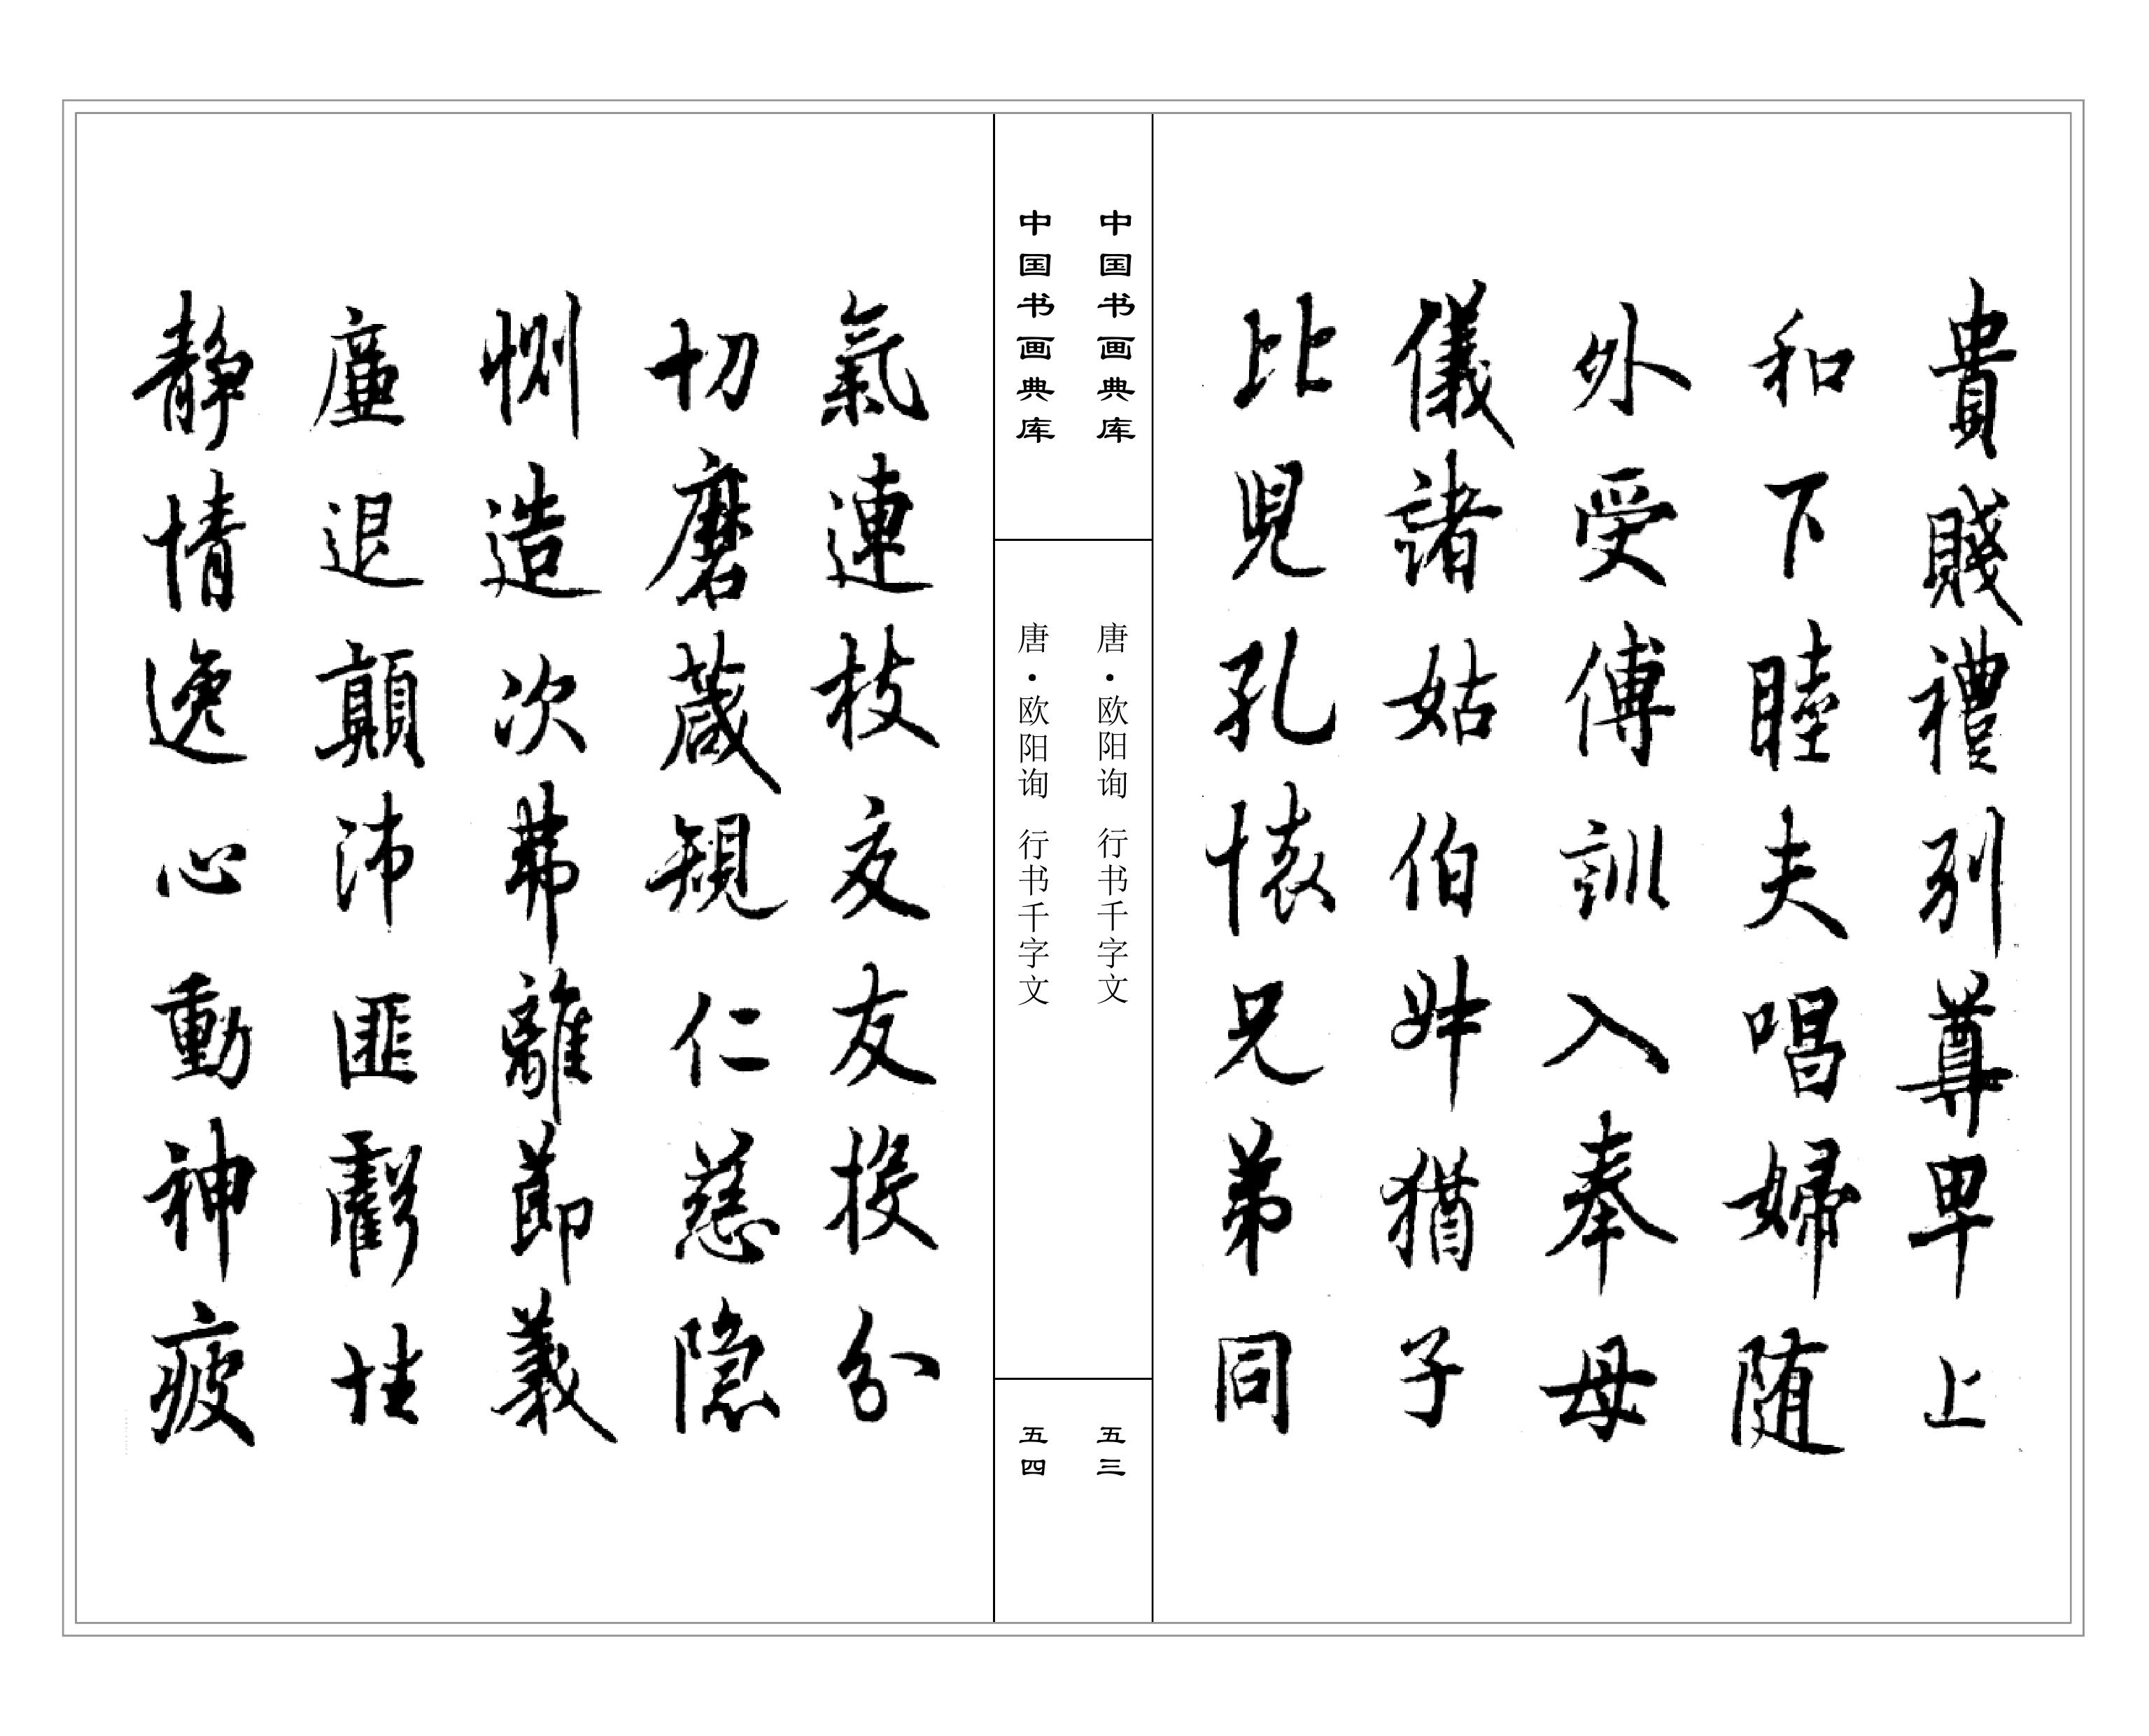 貴賤禮別尊卑上
和下睦夫唱婦随
外受傅訓入奉母
儀諸姑伯叔猶子
比兒孔懐兄弟同
中国书画典库
唐·欧阳询 行书千字文
五三
中国书画典库
唐·欧阳询 行书千字文
五四
氣連枝交友投分
切磨箴規仁慈隠
惻造次弗離節義
廉退顛沛匪虧性
静情逸心動神疲